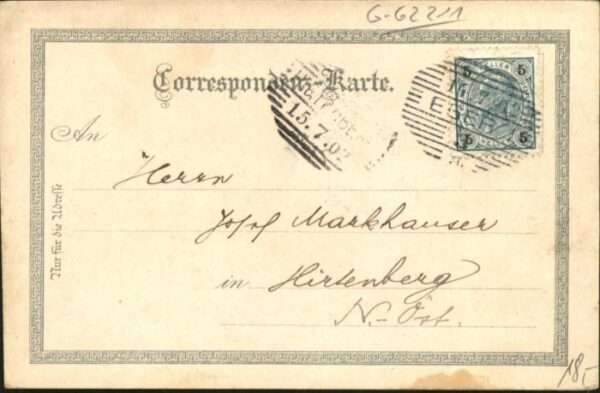 G-62211
Correspondenz-Karte.
5 5
15.7.02
5 5
An
Herrn
Josef Markhauser
in Hirtenberg
N.-Öst.
Nur für die Adresse
18,-